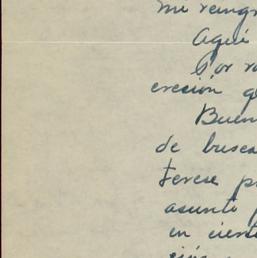 mi reingr
Aquí
Por r
eresión q
Buen
de busca
terese p
asunto p
en cierto